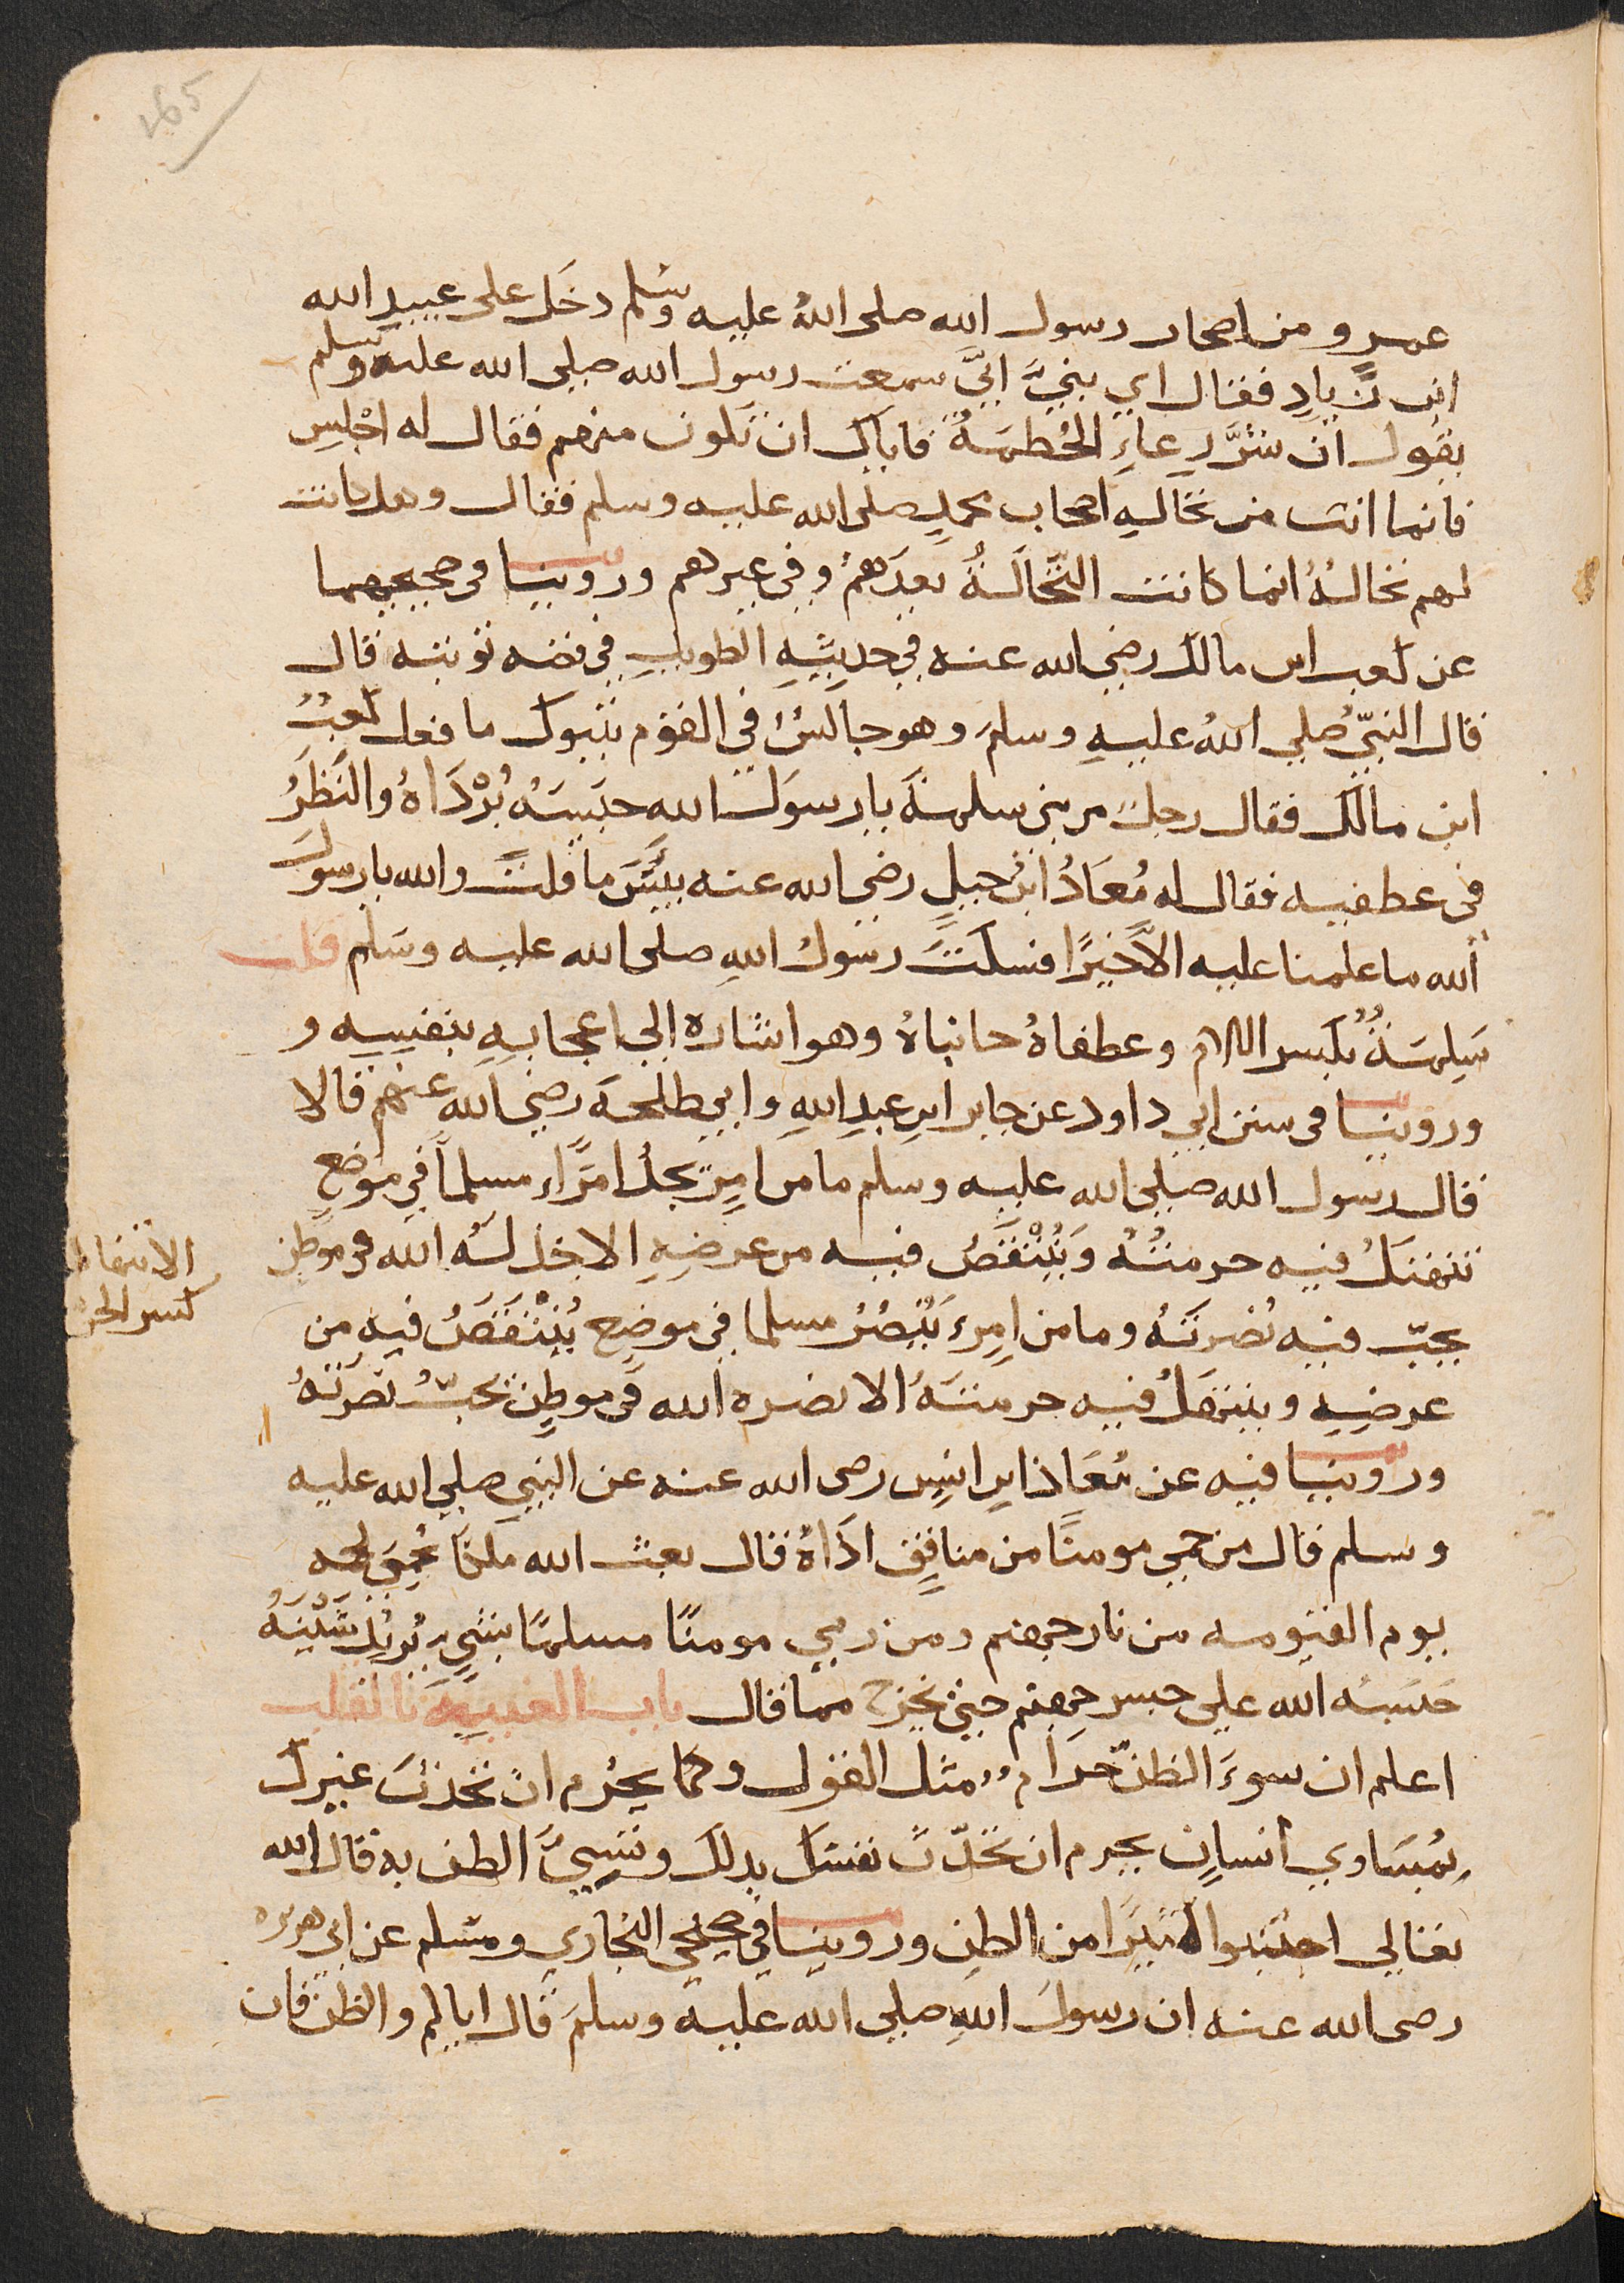 265
عمرٍو من اصحاب رسول الله صلى اللهُ عليه وسلم دخَل على عبيد الله
ابن زياد فقال اي بنيَّ انيّ سمعت رسول الله صلى الله عليه وسلم
يقول ان شرَّ الرعاءِ الحُطمَةُ فاياك ان تكون منهم فقال له اجْلِس
فانما انت من نخالهِ اصحاب محمدٍ صلى الله عليه وسلم فقال وهل كانت
لهم نخالةُ انما كانت النّخالَةُ بعدَهمُ وفي غيرهم وروينا في صحيحيهما
عن كعب ابن مالك رضي الله عنه في حديثِهِ الطويل في قصه توبته قال
قال النبيّ صُلى اللهُ عليهِ وسلم وهو جالسٌ في القوم بتبوك ما فعل كعبُ
ابن مالك فقال رجل من بني سلمةَ يا رسوَل الله حبَسَهُ بُرْدَاهُ والنَظَرُ
في عطفيه فقال له مُعَاذُ ابنُ جبلٍ رضي الله عنه بئسَ ما قلتَ والله يا رسول
الله ما علمنا عليه الاَّ خيرًا فسكَتَ رسولُ اللهِ صلى الله عليه وسَلم قلت
سَلِمَةُ بكسر اللام وعطفاهُ جانباهُ وهو اشاره الي اعجابهِ بنفسِهِ و
وروينا في سنن ابي داود عن جابر ابنِ عبدِ اللهِ وابي طلحَة رضي الله عنهم قالا
قال رسول الله صلى الله عليه وسلم ما من امرِئٍ يخذلُ امرَاءً مسلماً في موضع
تنتهكُ فيه حرمتُهُ وَيُنْتَقَصُ فيه من عرضِهِ الا خذلهُ الله في موطن
يحبّ فيه نُصْرتَهُ وما من امرِءٍ يَنصُرُ مسلما في موضع يُنْتَقَصُ فيه من
عرضِهِ وينتهكُ فيه حرمتهُ الا نصره الله في موطنٍ يحبُ نصرتَهُ
وروينا فيه عن مُعَاذ ابنِ انسٍ رضى الله عنه عن النبي صلى الله عليه
وسلم قال من حمي مومنًا من منافقٍ اذَاهُ قال بعث الله ملكاً يُحمِي لحمه
يوم القيومه من نار جهنم ومن رمي مومنًا مسلمًا بشيٍ يُريدُ شَيْنَهُ
حَبَسهُ الله على جسر جهنم حتي يخرج مما قال باب الغيبهِ بالقلب
اعلم ان سوءَ الظنّ حَرَام مثل القول وكما يحْرُم ان تحدّثَ غيرك
بمَساوِي انسانٍ يحرم ان تحَدّثَ نفسَكَ بذلك وتسِيَّ الظن به قال الله
تعالي اجتنبوا كثيرًا من الظنِ وروينا في صحيحي البخاري ومسلم عن ابي هريره
رضى الله عنه ان رسولَ اللهِ صلى الله عليه وسلمَ قال اياكم والظن فان
الانتهاك
كسر الحر